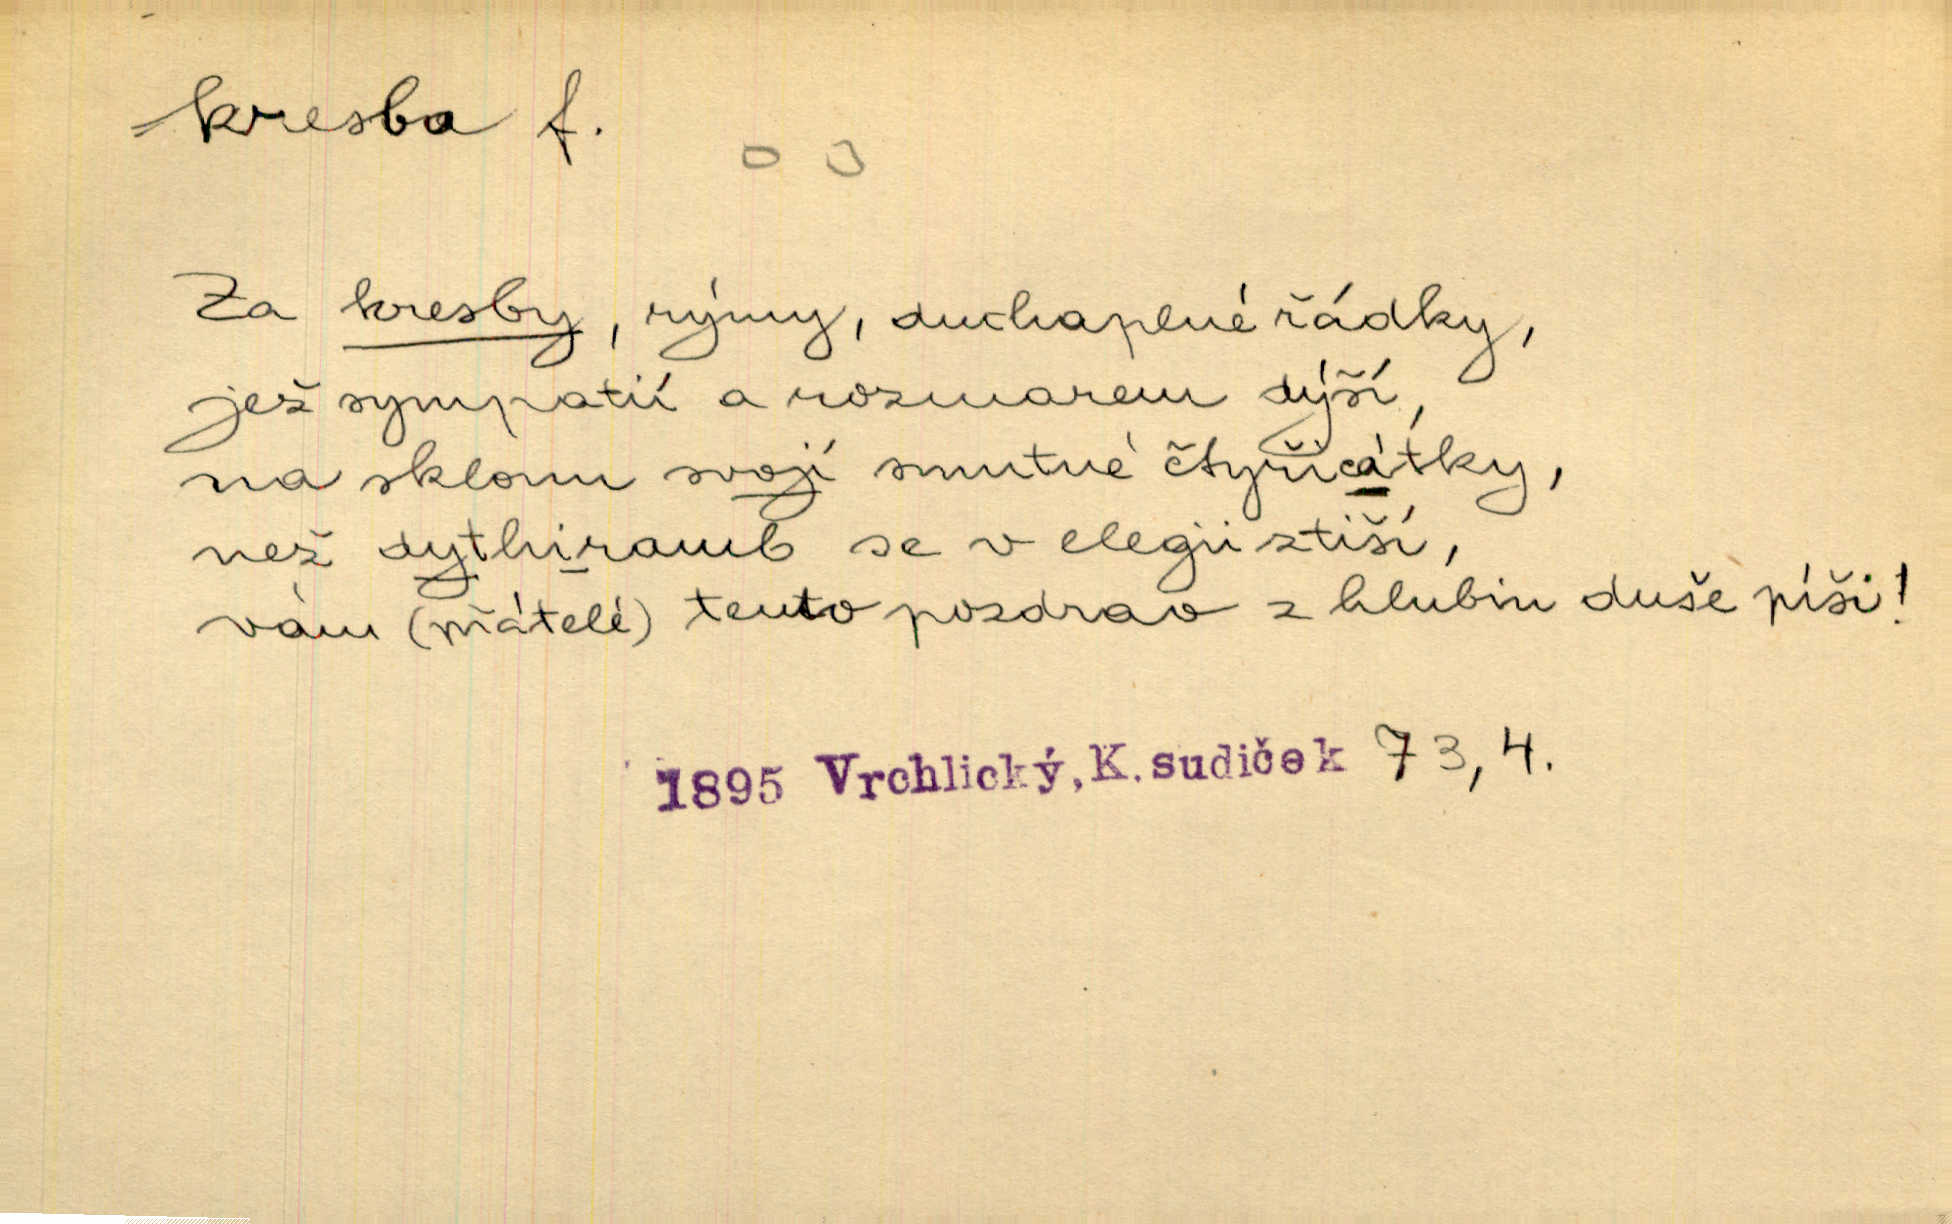 kresba f.
Za kresby, rýmy, duchaplné řádky,
jež sympatií a rozmarem dýší,
na sklonu svojí smutné čtyřicátky,
než dythiramb se v elegii ztiší,
vám (přátelé) tento pozdrav z hlubin duše píši!
1895 Vrchlický, K. sudiček 73,4.